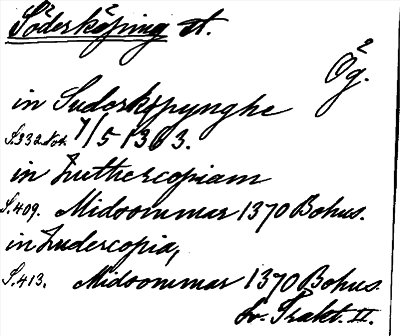 Söderköping st.
Ög.
in Suderkøpynghe
S.232 Not. 7/5 1363.
in Suthercopiam
S.409. Midsommar 1370 Bohus.
in Sudercopia,
S.413. Midsommar 1370 Bohus.
Sv. Trakt. II.